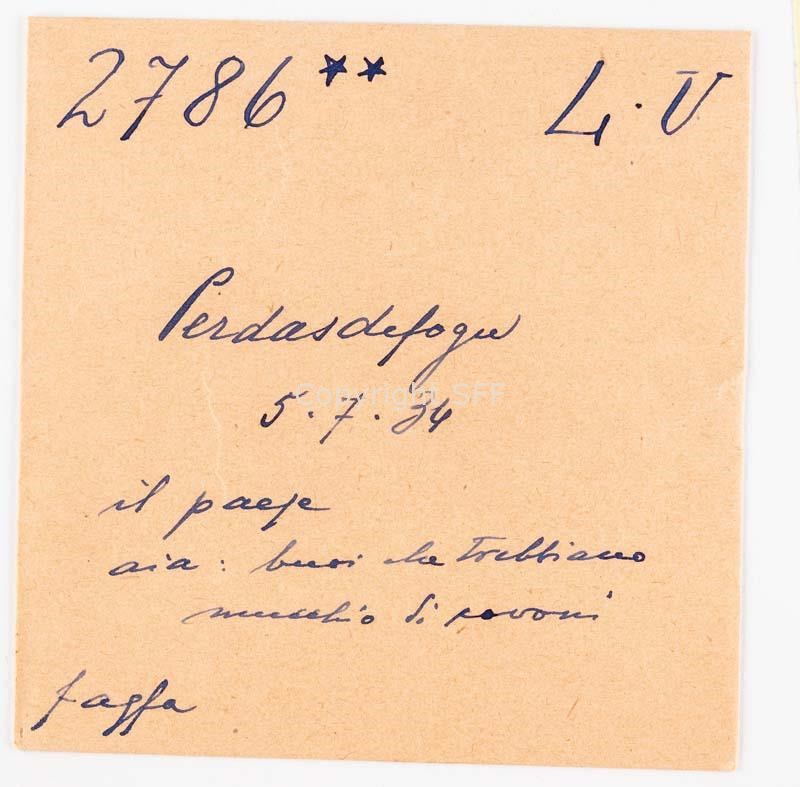 2786 ** L. V
Perdasdefogu
5.7.34
Copyright SFF
il paese
aia: buoi che trebbiano
mucchio di covoni
fagfa